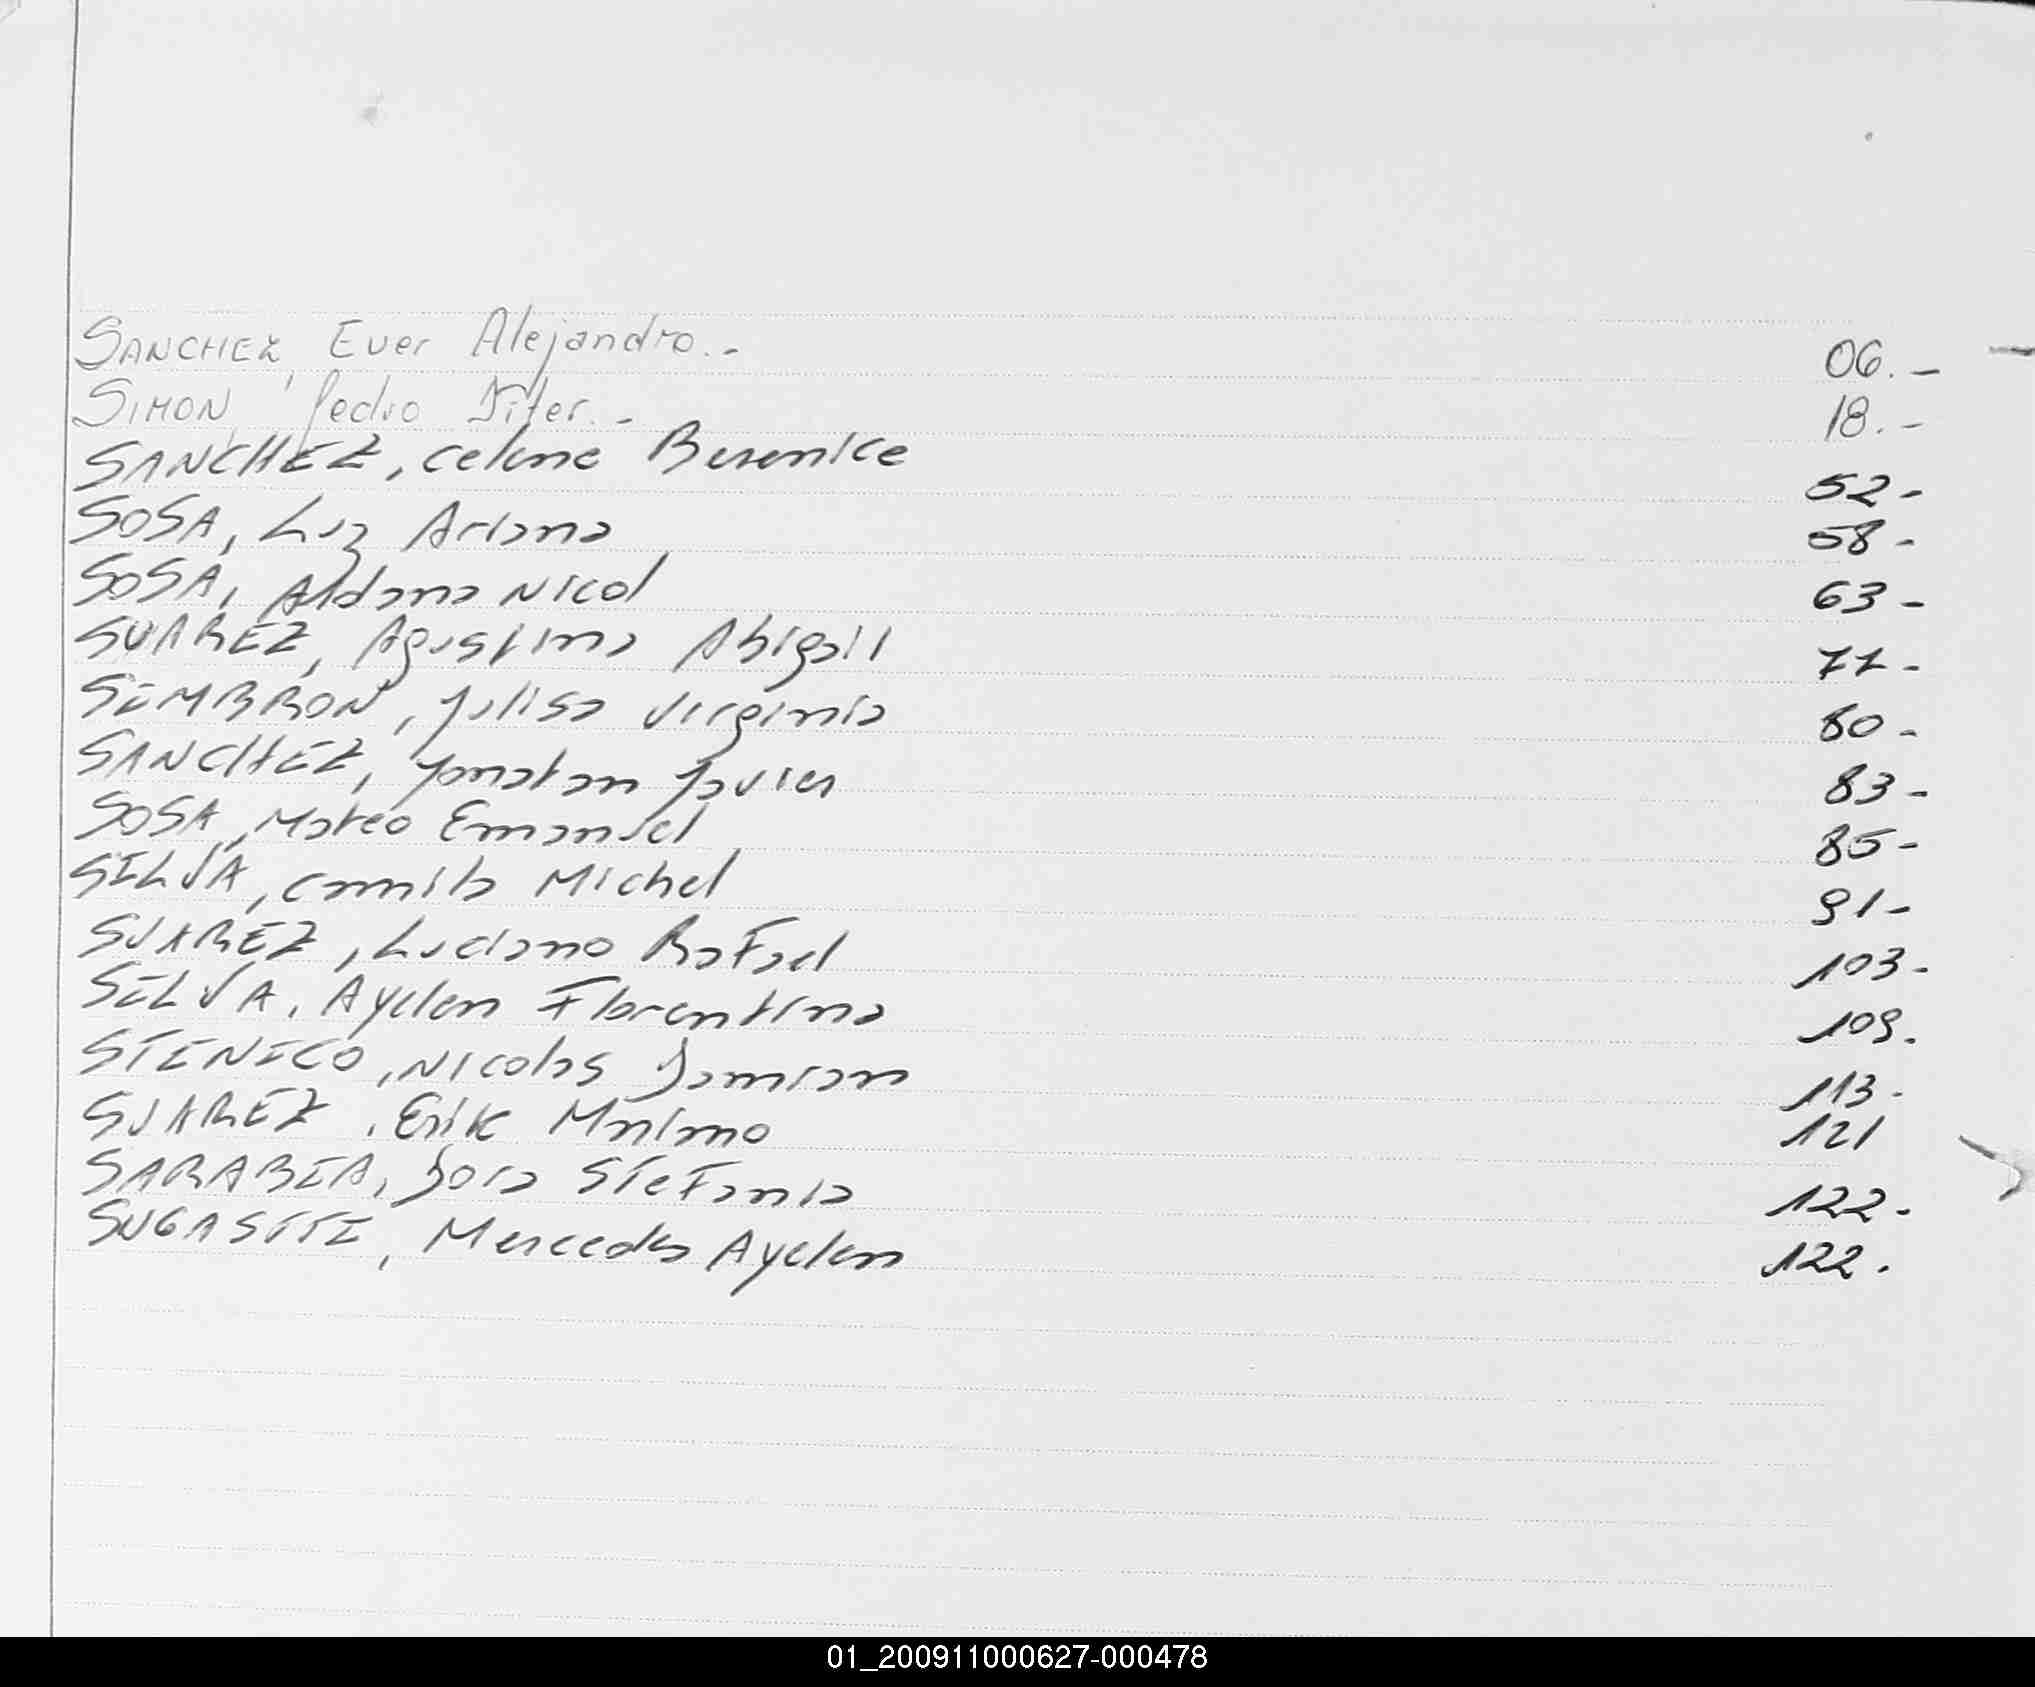 SANCHEZ, Ever Alejandro.- 06.-
SIMON, Pedro Diter.- 18.-
SANCHEZ, Celene Berenice 52-
SOSA, Luz Ariana 58-
SOSA, Aldana Nicol 63-
SUAREZ, Agustina Abigail 71-
SEMBRON, Julisa Virginia 80-
SANCHEZ, Jonatan Javier 83-
SOSA, Mateo Emanuel 85-
SILVA, Camila Michel 91-
SUAREZ, Luciano Rafael 103-
SILVA, Ayelen Florentina 109.
STENICO, Nicolas Damian 113-
SUAREZ, Erik 121
SARABIA, Sofia Stefania 122-
SUGASTTI, Mercedes Ayelen 122.
01_200911000627-000478